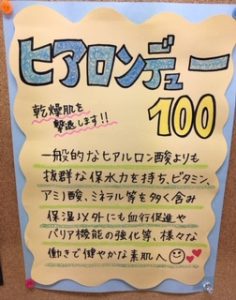 ヒアロンデュー
100
乾燥肌を
撃退します!!
一般的なヒアルロン酸よりも
抜群な保水力を持ち、ビタミン、
アミノ酸、ミネラル等を多く含み
保湿以外にも血行促進や
バリア機能の強化等、様々な
働きで健やかな素肌へ